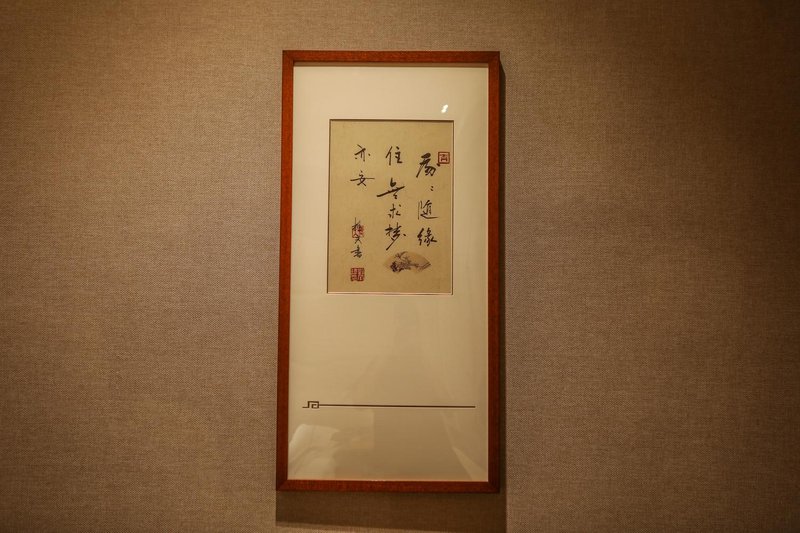 處々隨緣
住無求梦
亦安
書